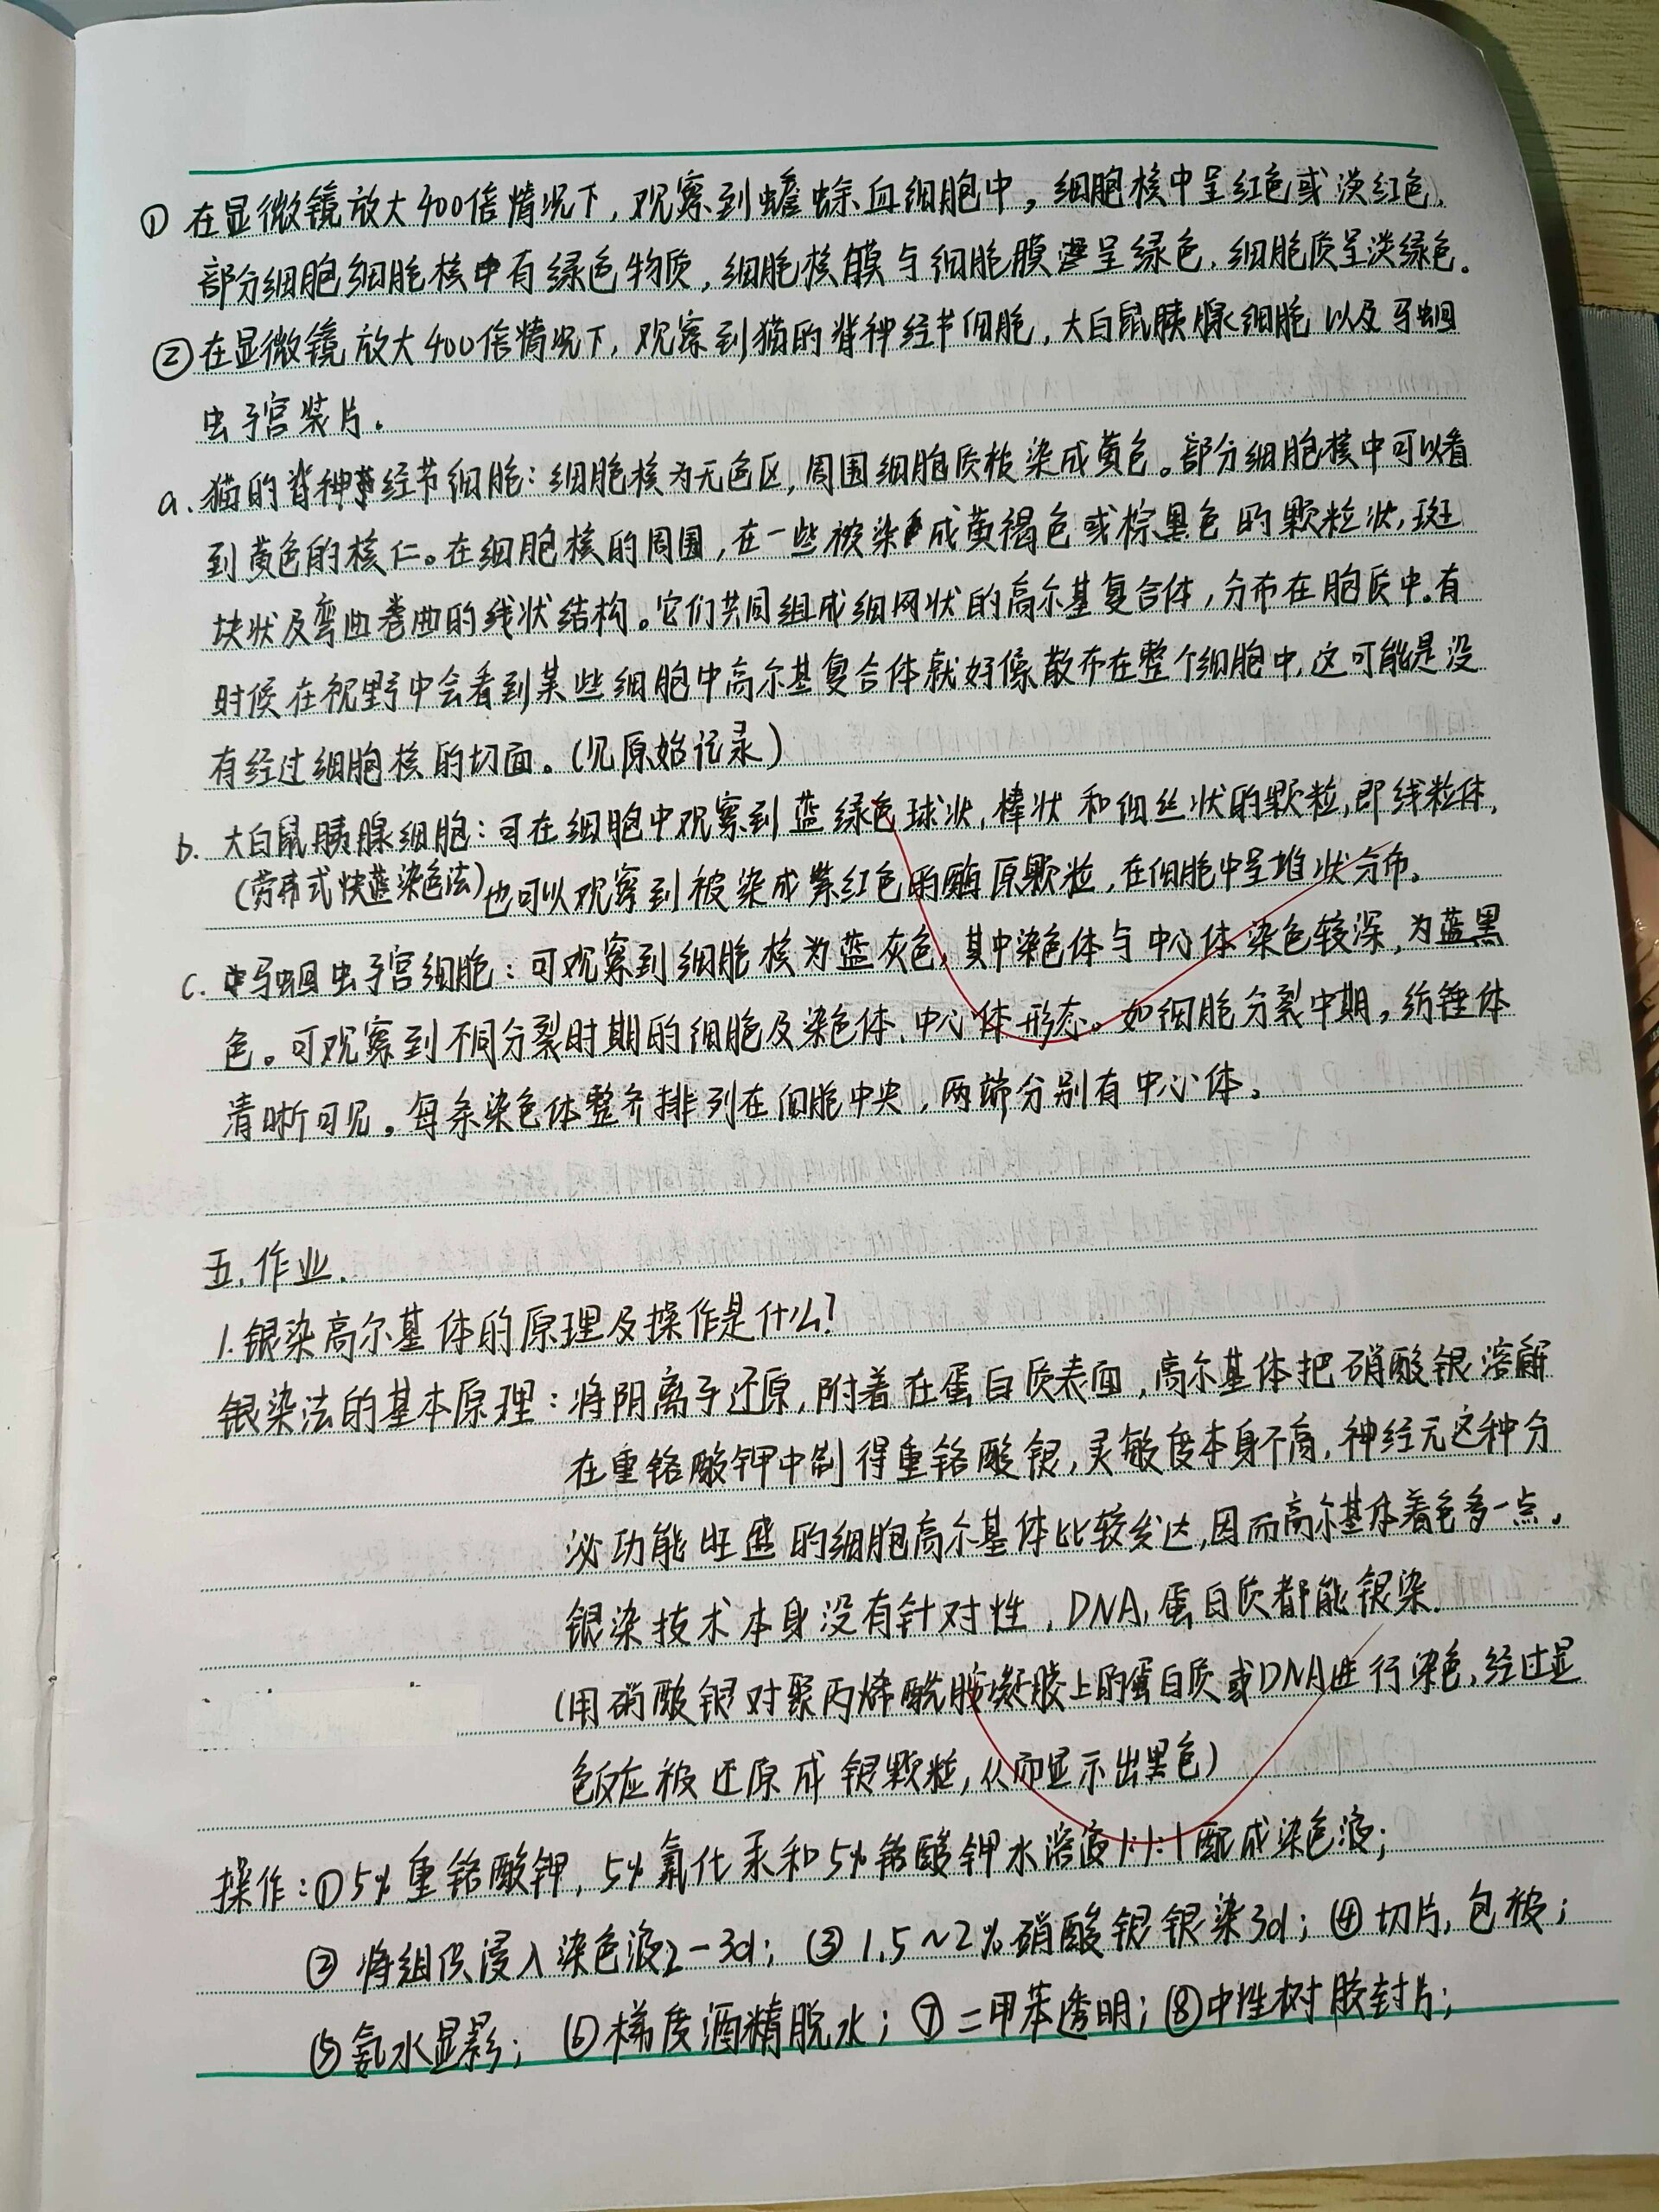 ① 在显微镜放大400倍情况下,观察到蟾蜍血细胞中,细胞核中呈红色或淡红色,
部分细胞细胞核中有绿色物质,细胞核膜与细胞膜呈绿色,细胞质呈淡绿色。
② 在显微镜放大400倍情况下,观察到猫的脊神经节细胞,大白鼠胰腺细胞以及马蛔
虫子宫装片。
a. 猫的脊神经节细胞:细胞核为无色区,周围细胞质被染成黄色。部分细胞核中可以看
到黄色的核仁。在细胞核的周围,在一些被染成黄褐色或棕黑色的颗粒状,斑
块状及弯曲卷曲的线状结构。它们共同组成细网状的高尔基复合体,分布在胞质中。有
时候在视野中会看到某些细胞中高尔基复合体就好像散布在整个细胞中,这可能是没
有经过细胞核的切面。(见原始记录)
b. 大白鼠胰腺细胞:可在细胞中观察到蓝绿色球状,棒状和细丝状的颗粒,即线粒体,
(劳弗式快蓝染色法)也可以观察到被染成紫红色的酶原颗粒,在细胞中呈堆状分布。
c. 马蛔虫子宫细胞:可观察到细胞核为蓝灰色,其中染色体与中心体染色较深,为蓝黑
色。可观察到不同分裂时期的细胞及染色体、中心体形态。如细胞分裂中期,纺锤体
清晰可见。每条染色体整齐排列在细胞中央,两端分别有中心体。
五、作业.
1.银染高尔基体的原理及操作是什么?
银染法的基本原理:将阴离子还原,附着在蛋白质表面,高尔基体把硝酸银溶解
在重铬酸钾中制得重铬酸银,灵敏度本身不高,神经元这种分
泌功能旺盛的细胞高尔基体比较发达,因而高尔基体着色多一点。
银染技术本身没有针对性,DNA,蛋白质都能银染.
(用硝酸银对聚丙烯酰胺凝胶上的蛋白质或DNA进行染色,经过显
色反应被还原成银颗粒,从而显示出黑色)
操作:①5%重铬酸钾,5%氯化汞和5%铬酸钾水溶液1:1:1配成染色液;
② 将组织浸入染色液2-3d; ③ 1.5~2%硝酸银银染3d; ④ 切片,包被;
⑤氨水显影; ⑥梯度酒精脱水; ⑦二甲苯透明; ⑧中性树胶封片;